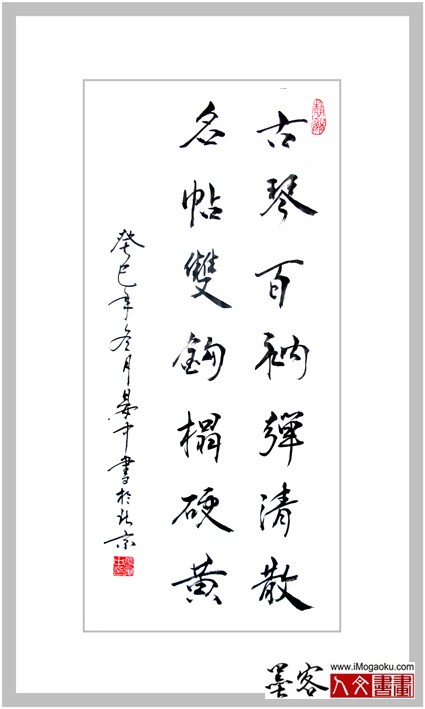 古琴百衲彈清散
名帖雙鉤榻硬黃
癸巳年冬月晏中書於北京
墨客
www.iMogaoku.com
人文書畫